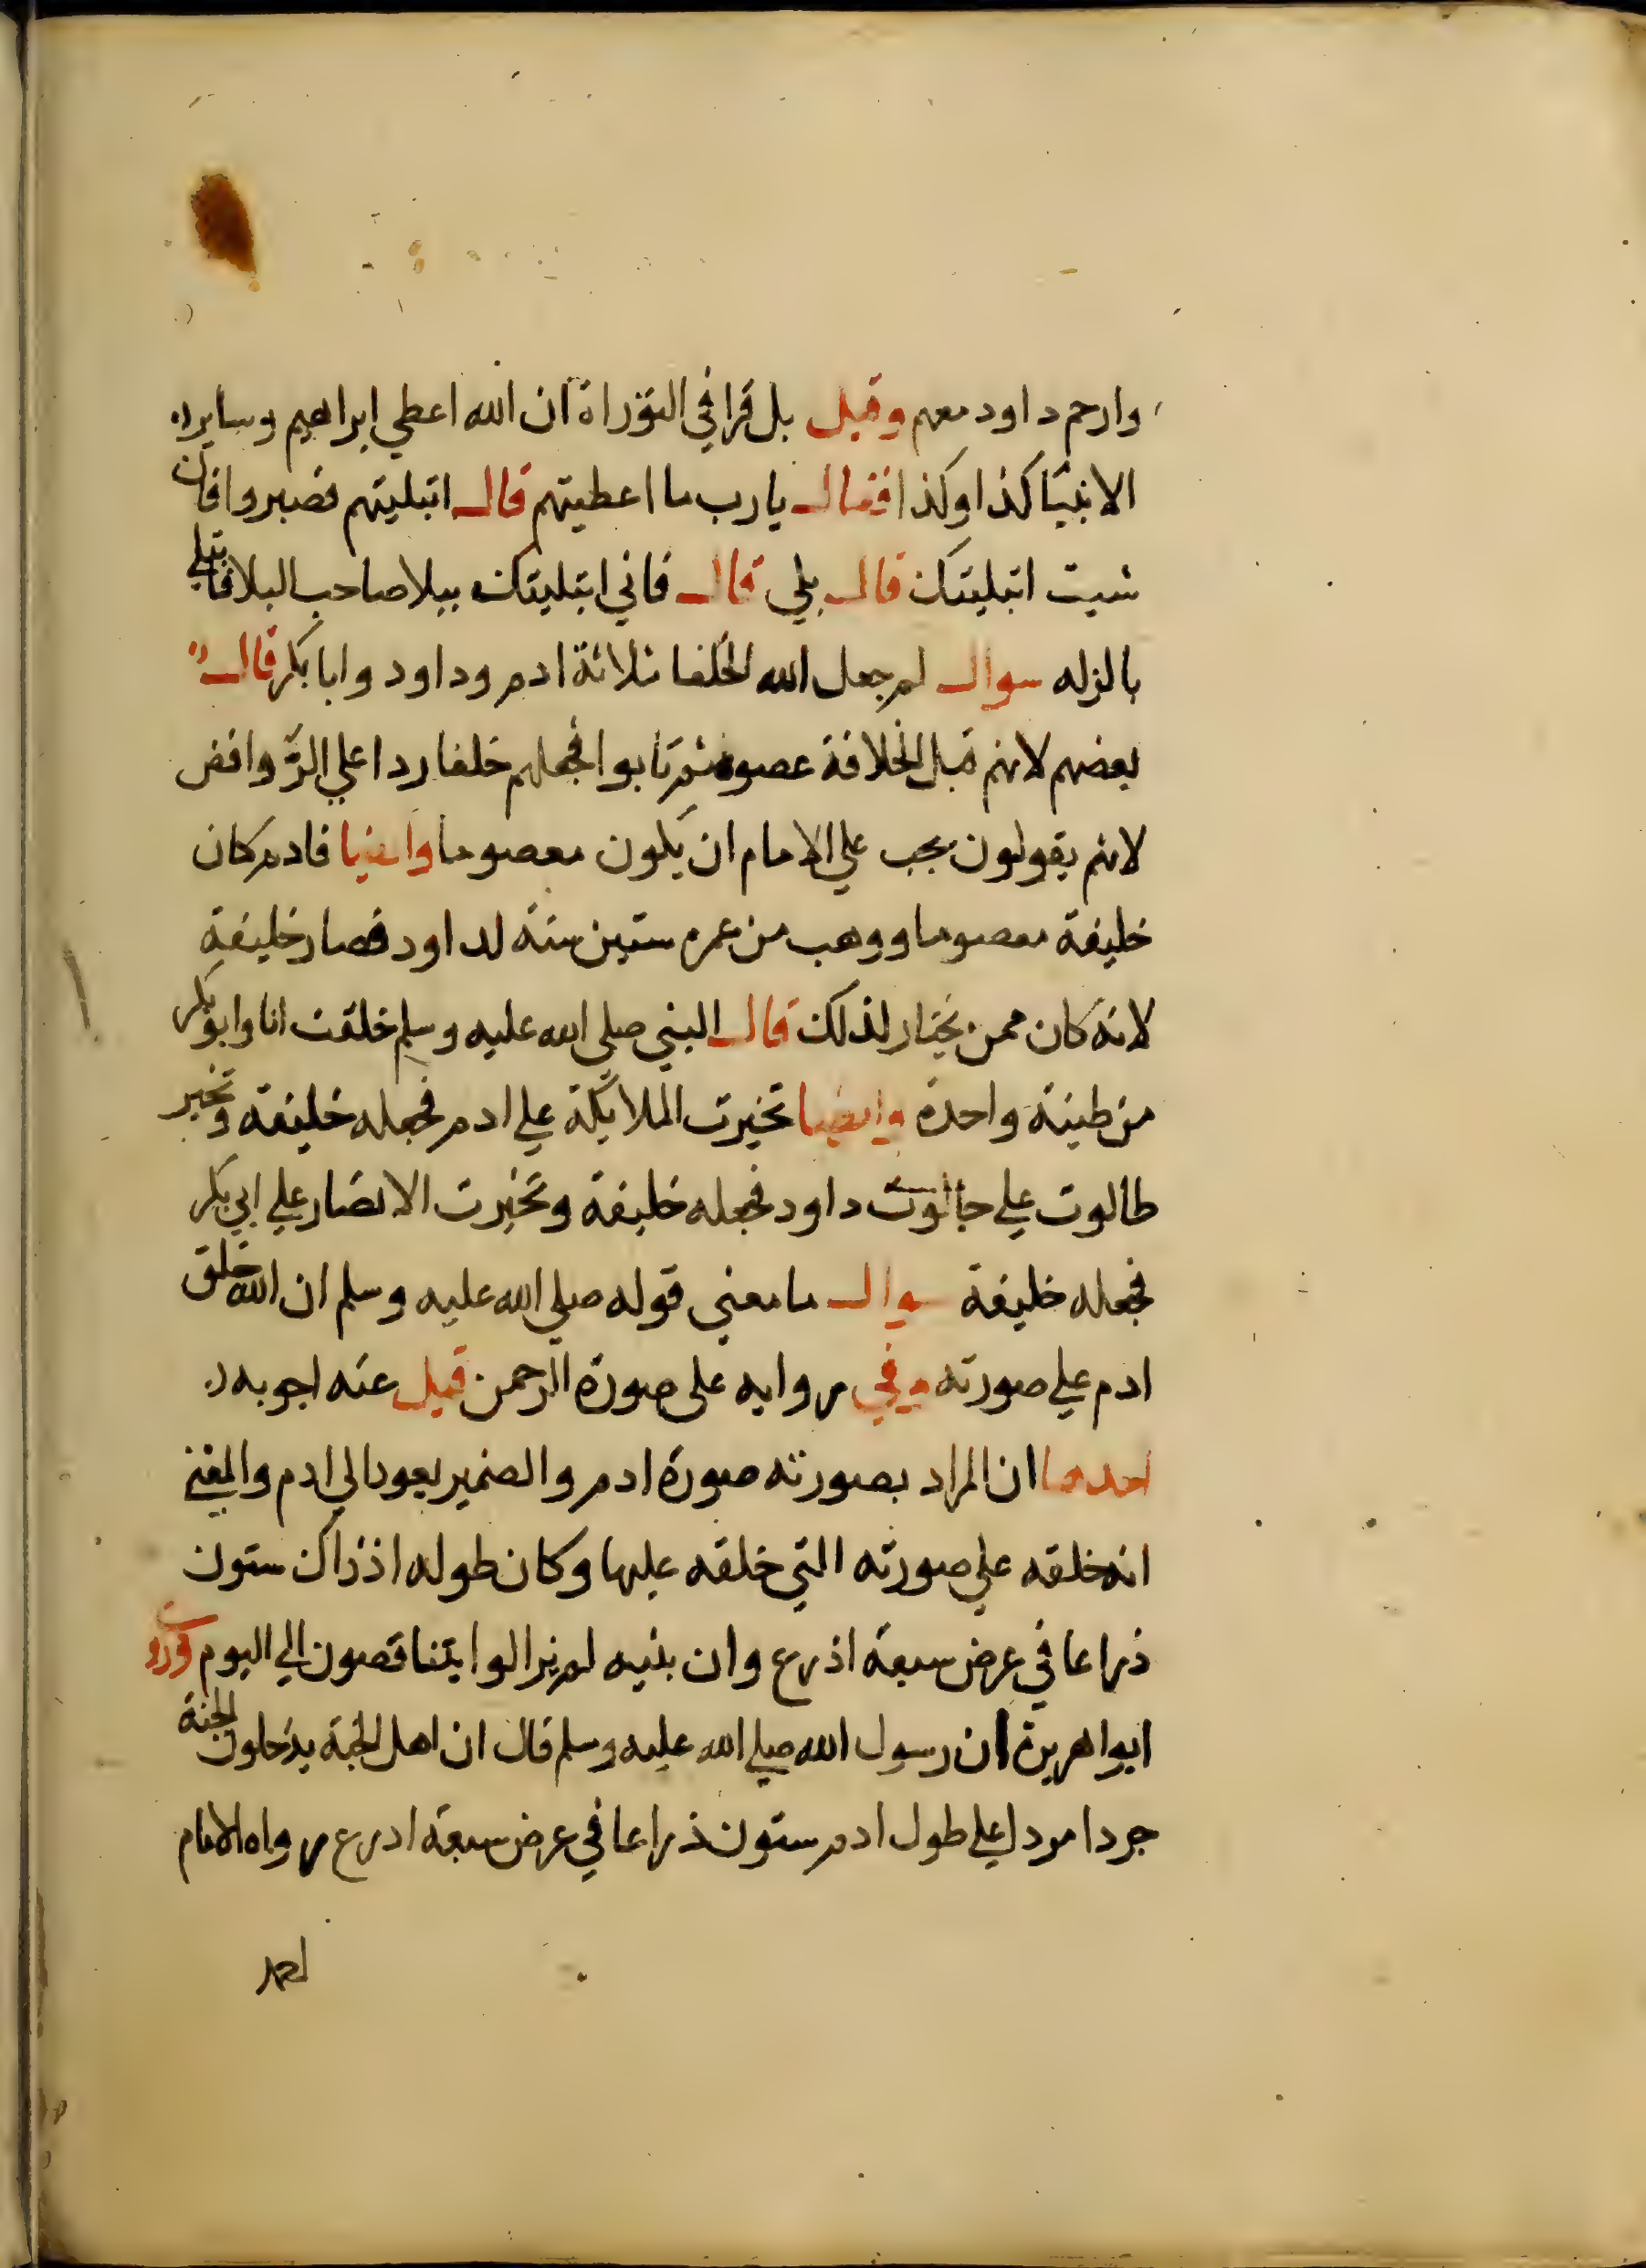 وارحم داود معهم وقيل بل قرا في التوراة ان الله اعطي ابراهيم وساير
الانبيا كذا وكذا فقال يارب ما اعطيتهم قال ابتليتهم فصبروا فان
شيت ابتليتك قال بلي قال فاني ابتليتك ببلا صاحب البلا فابتلي
بالزله سوال لم جعل الله الخلفا ثلاثة ادم وداود وابا بكر قال
بعضهم لانهم قبل الخلافة عصوه ثم تابوا فجعلهم خلفا ردا علي الروافض
لانهم يقولون يجب علي الامام ان يكون معصوما وايضا فادم كان
خليفة معصوما ووهب من عمره ستين سنة لداود فصار خليفة
لانه كان ممن يختار لذلك قال النبي صلي الله عليه وسلم خلقت انا وابو بكر
من طينة واحدة وايضا تخيرت الملايكة علي ادم فجعله خليفة وتخير
طالوت علي جالوت داود فجعله خليفة وتخيرت الانصار علي ابي بكر
فجعله خليفة سوال ما معني قوله صلي الله عليه وسلم ان الله خلق
ادم علي صورته وفي روايه علي صورة الرحمن قيل عنه اجوبه
احدها ان المراد بصورته صورة ادم والضمير يعود الي ادم والمعني
انه خلقه علي صورته التي خلقه عليها وكان طوله اذ ذاك ستون
ذراعا في عرض سبعة اذرع وان بنيه لم يزالوا يتناقصون الي اليوم وروت
ابوا هريرة ان رسول الله صلي الله عليه وسلم قال ان اهل الجنة يدخلون الجنة
جردا مردا علي طول ادم ستون ذراعا في عرض سبعة ادرع رواه الامام
احمد